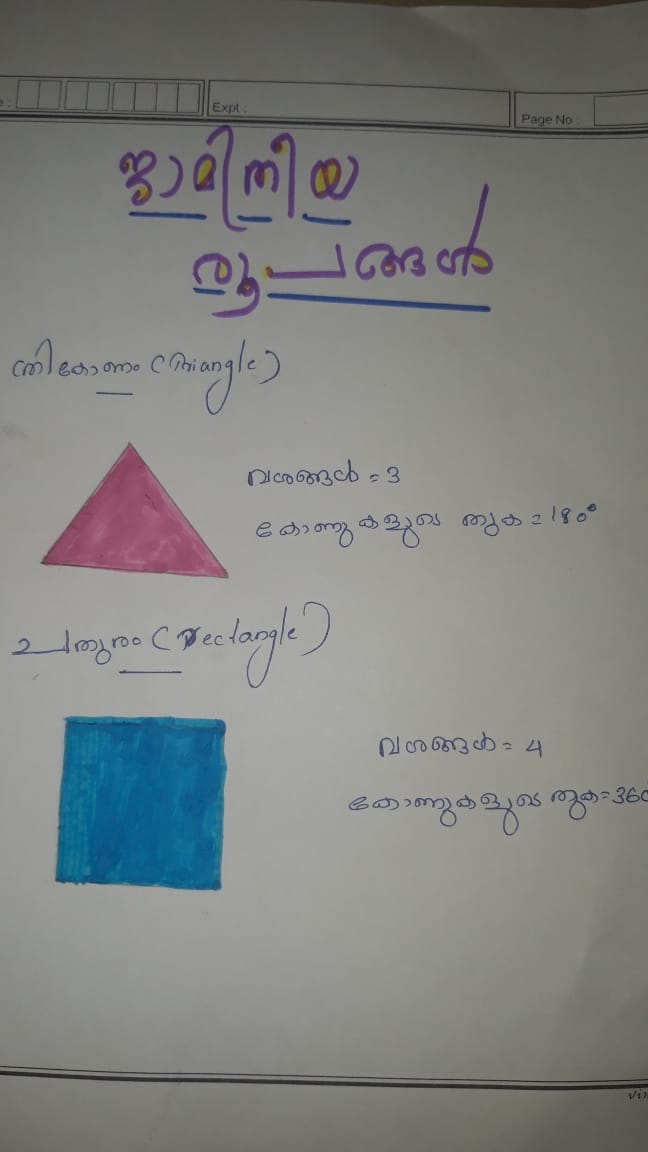 Expt :
Page No :
ജാമിതീയ
രൂപങ്ങൾ
ത്രികോണം (Triangle)
വശങ്ങൾ = 3
കോണുകളുടെ തുക = 180°
ചതുരം (Rectangle)
വശങ്ങൾ = 4
കോണുകളുടെ തുക = 360